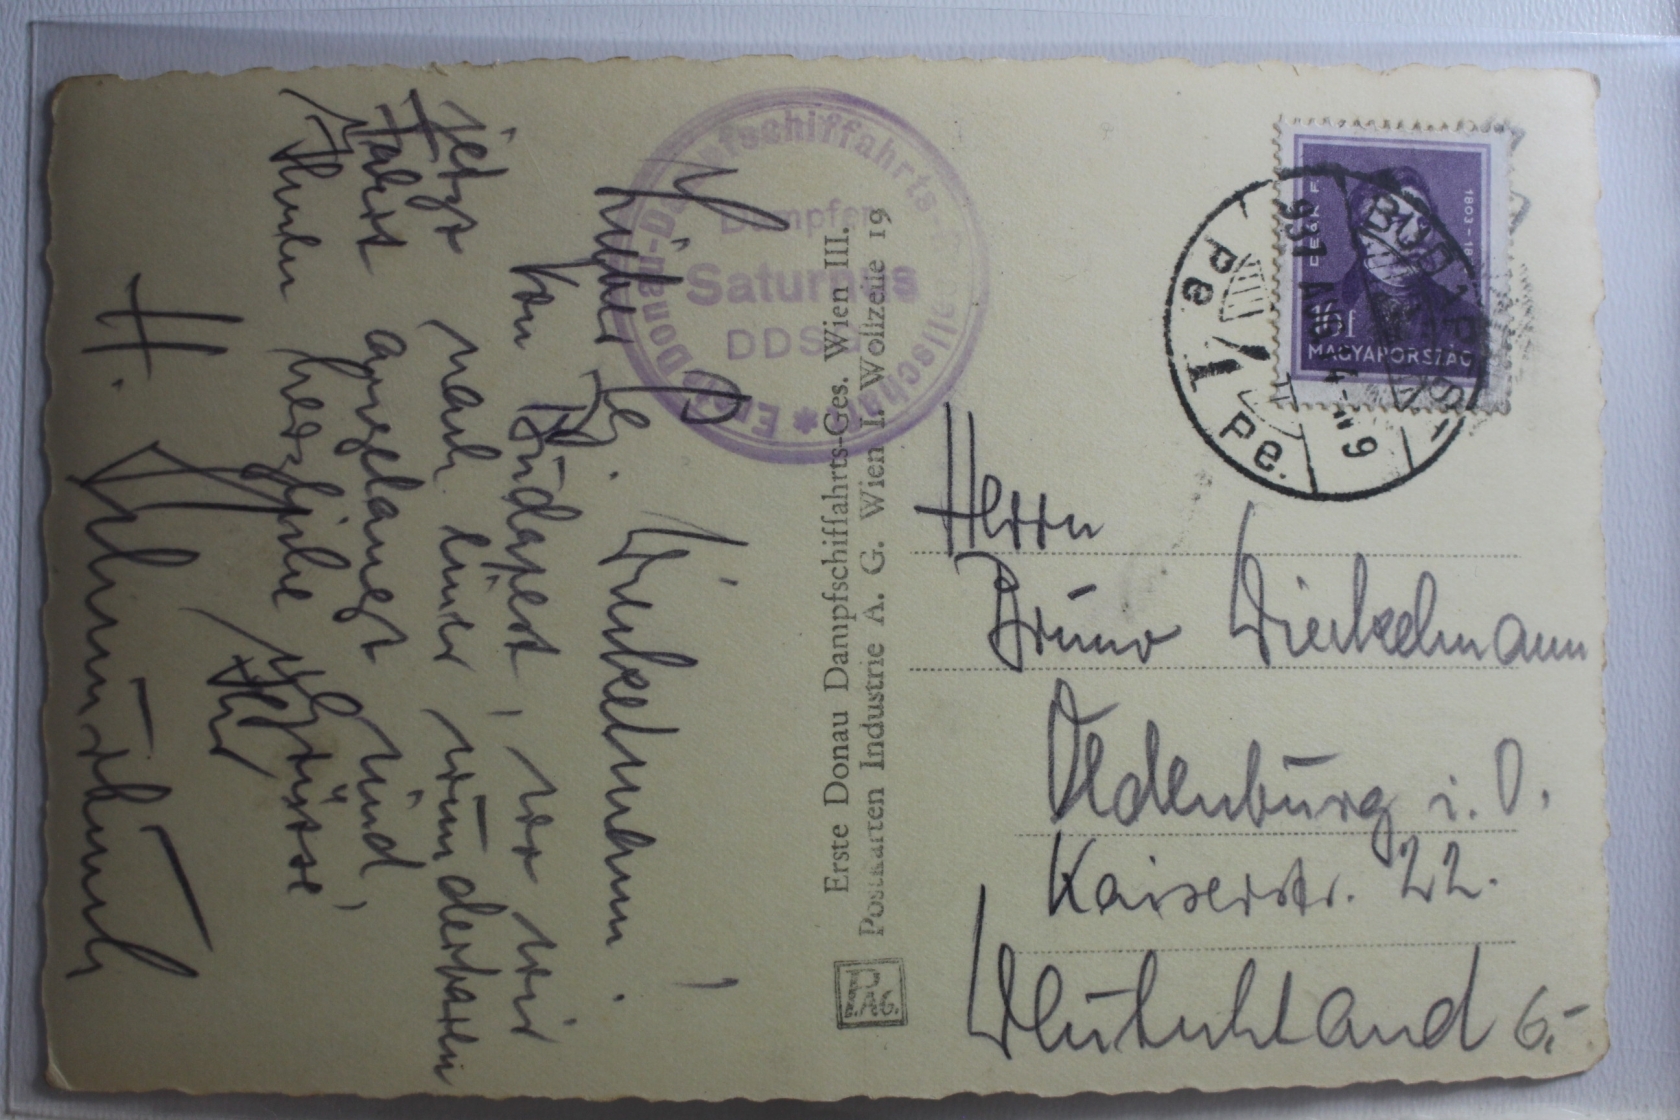 Erste Donau-Dampfschiffahrts-Gesellschaft *
Dampfer
Saturnus
DDSG
Dieckelmann!
Von Budapest, wo wir
jetzt nach einer wunderbaren
Fahrt angelangt sind,
Ihnen herzliche Grüsse,
Ihr
H.
Erste Donau Dampfschiffahrts-Ges. Wien III.
Postkarten Industrie A. G. Wien I. Wollzeile 19
PAG.
DEÁK F.
1803-18
f
MAGYARORSZÁG
BUDAPEST
Pe. I Pe.
Herrn
Bruno Dieckelmann
Oldenburg i. O.
Kaiserstr. 22.
Deutschland 6.-